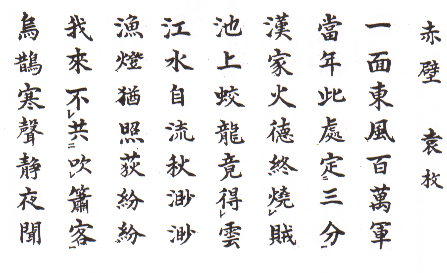 赤壁 袁枚
一面東風百萬軍
當年此處定三分
漢家火徳終燒賊
池上蛟龍竟得雲
江水自流秋渺渺
漁燈猶照荻紛紛
我來不共吹簫客
烏鵲寒聲静夜聞